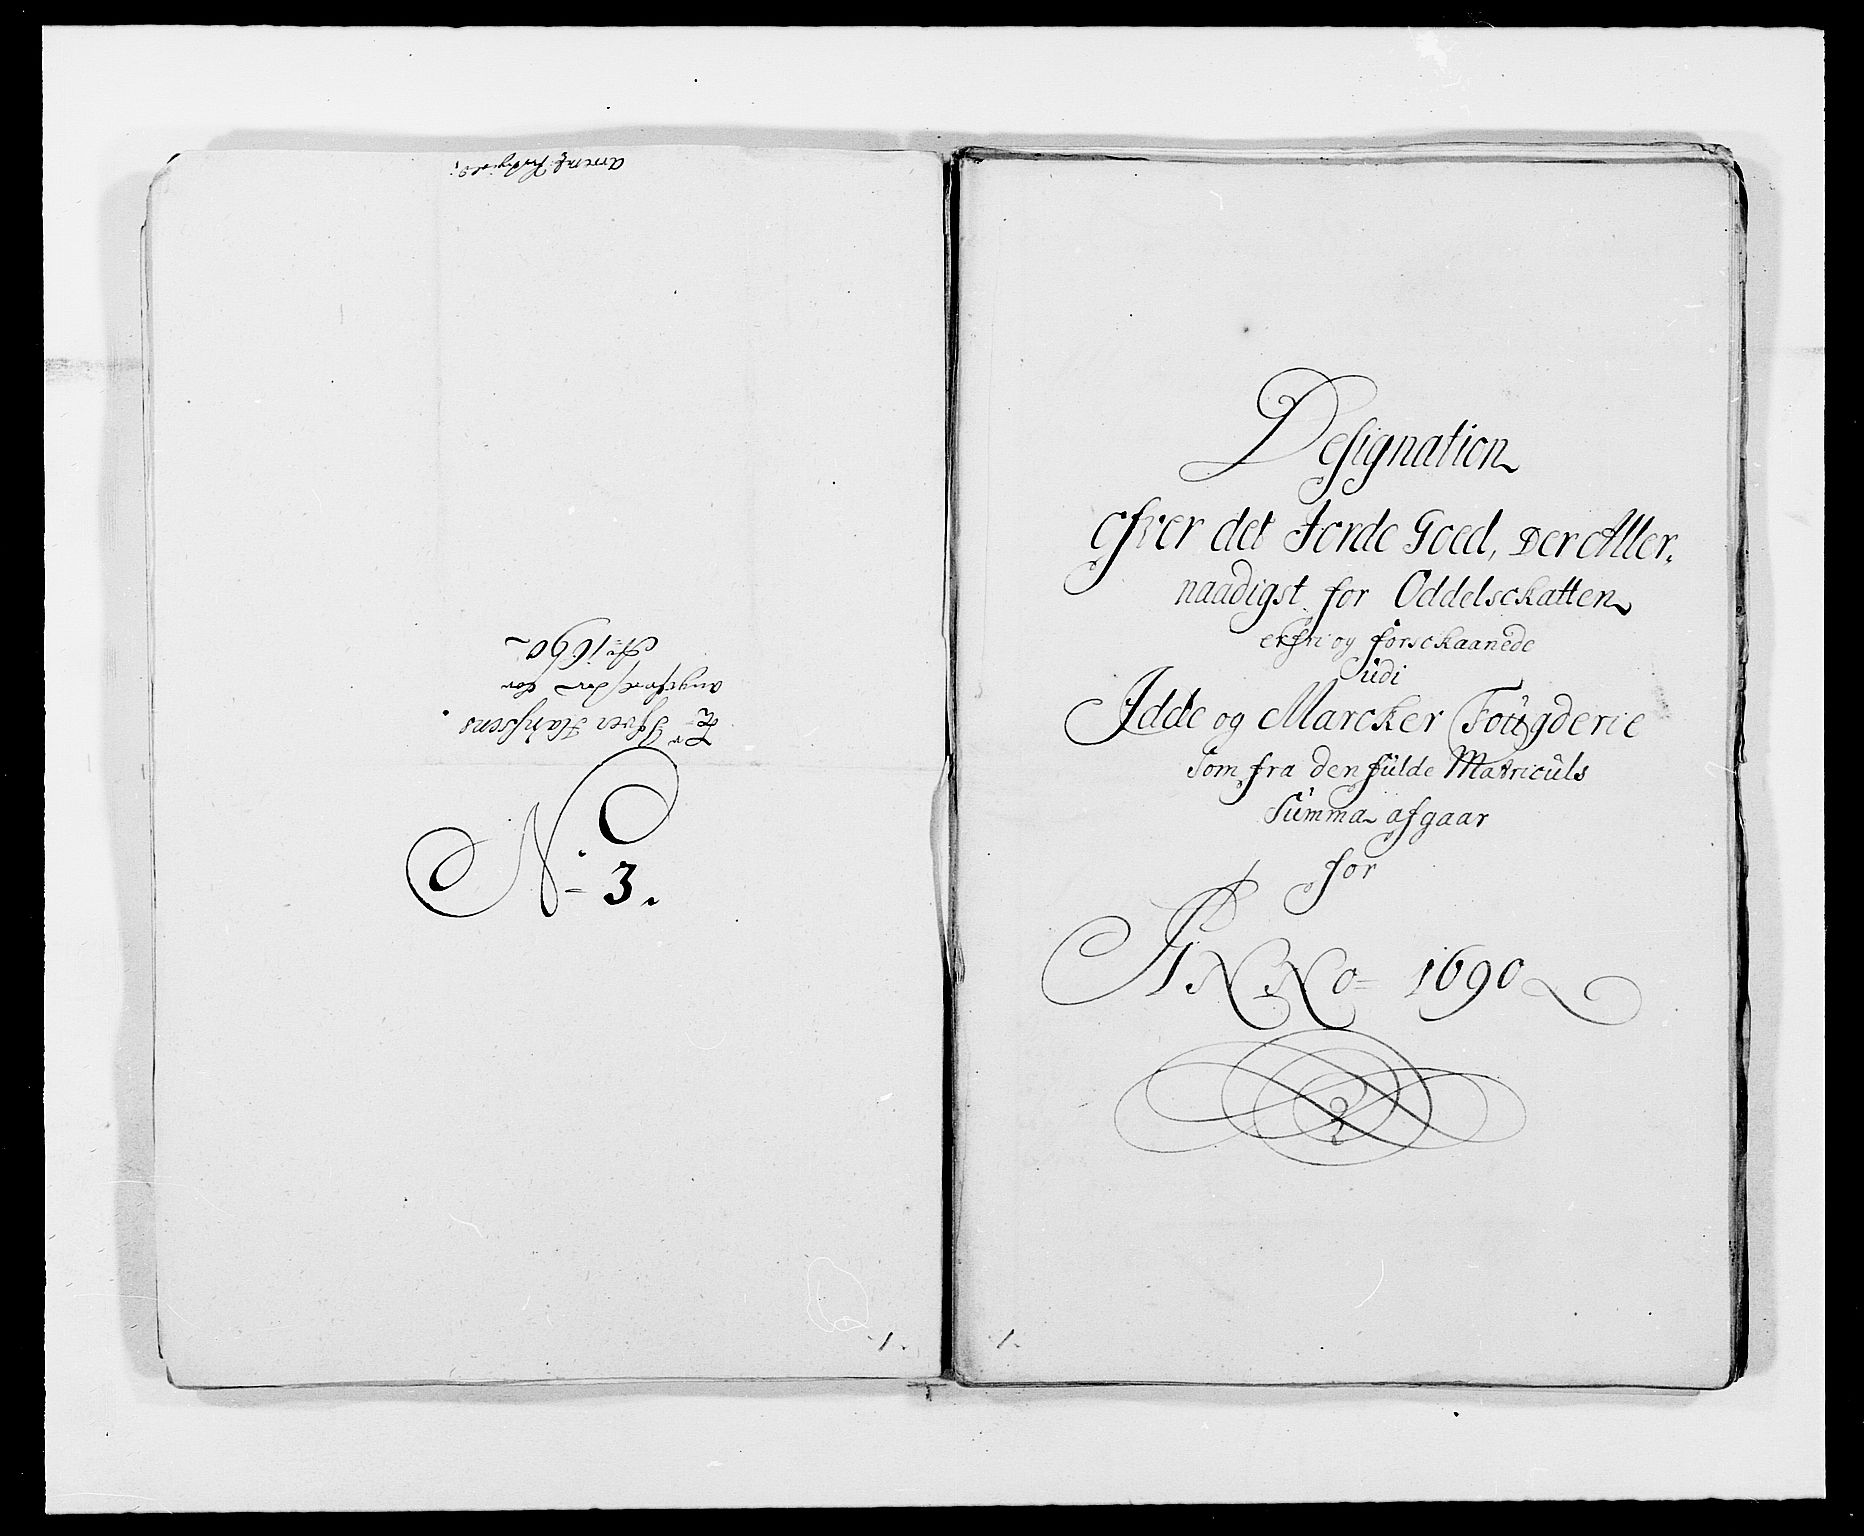 N<sup>o</sup> 3.
Ao 1690
1.
Designation
ofver det Jorde Goed, Der Aller-
naadigst for Oddelsckatten
er fri og forsckaanede
Udi
Idde og Marcker Fougderie
Som fra den fulde Matriculs
Summa afgaar
for
ANNO 1690
1.